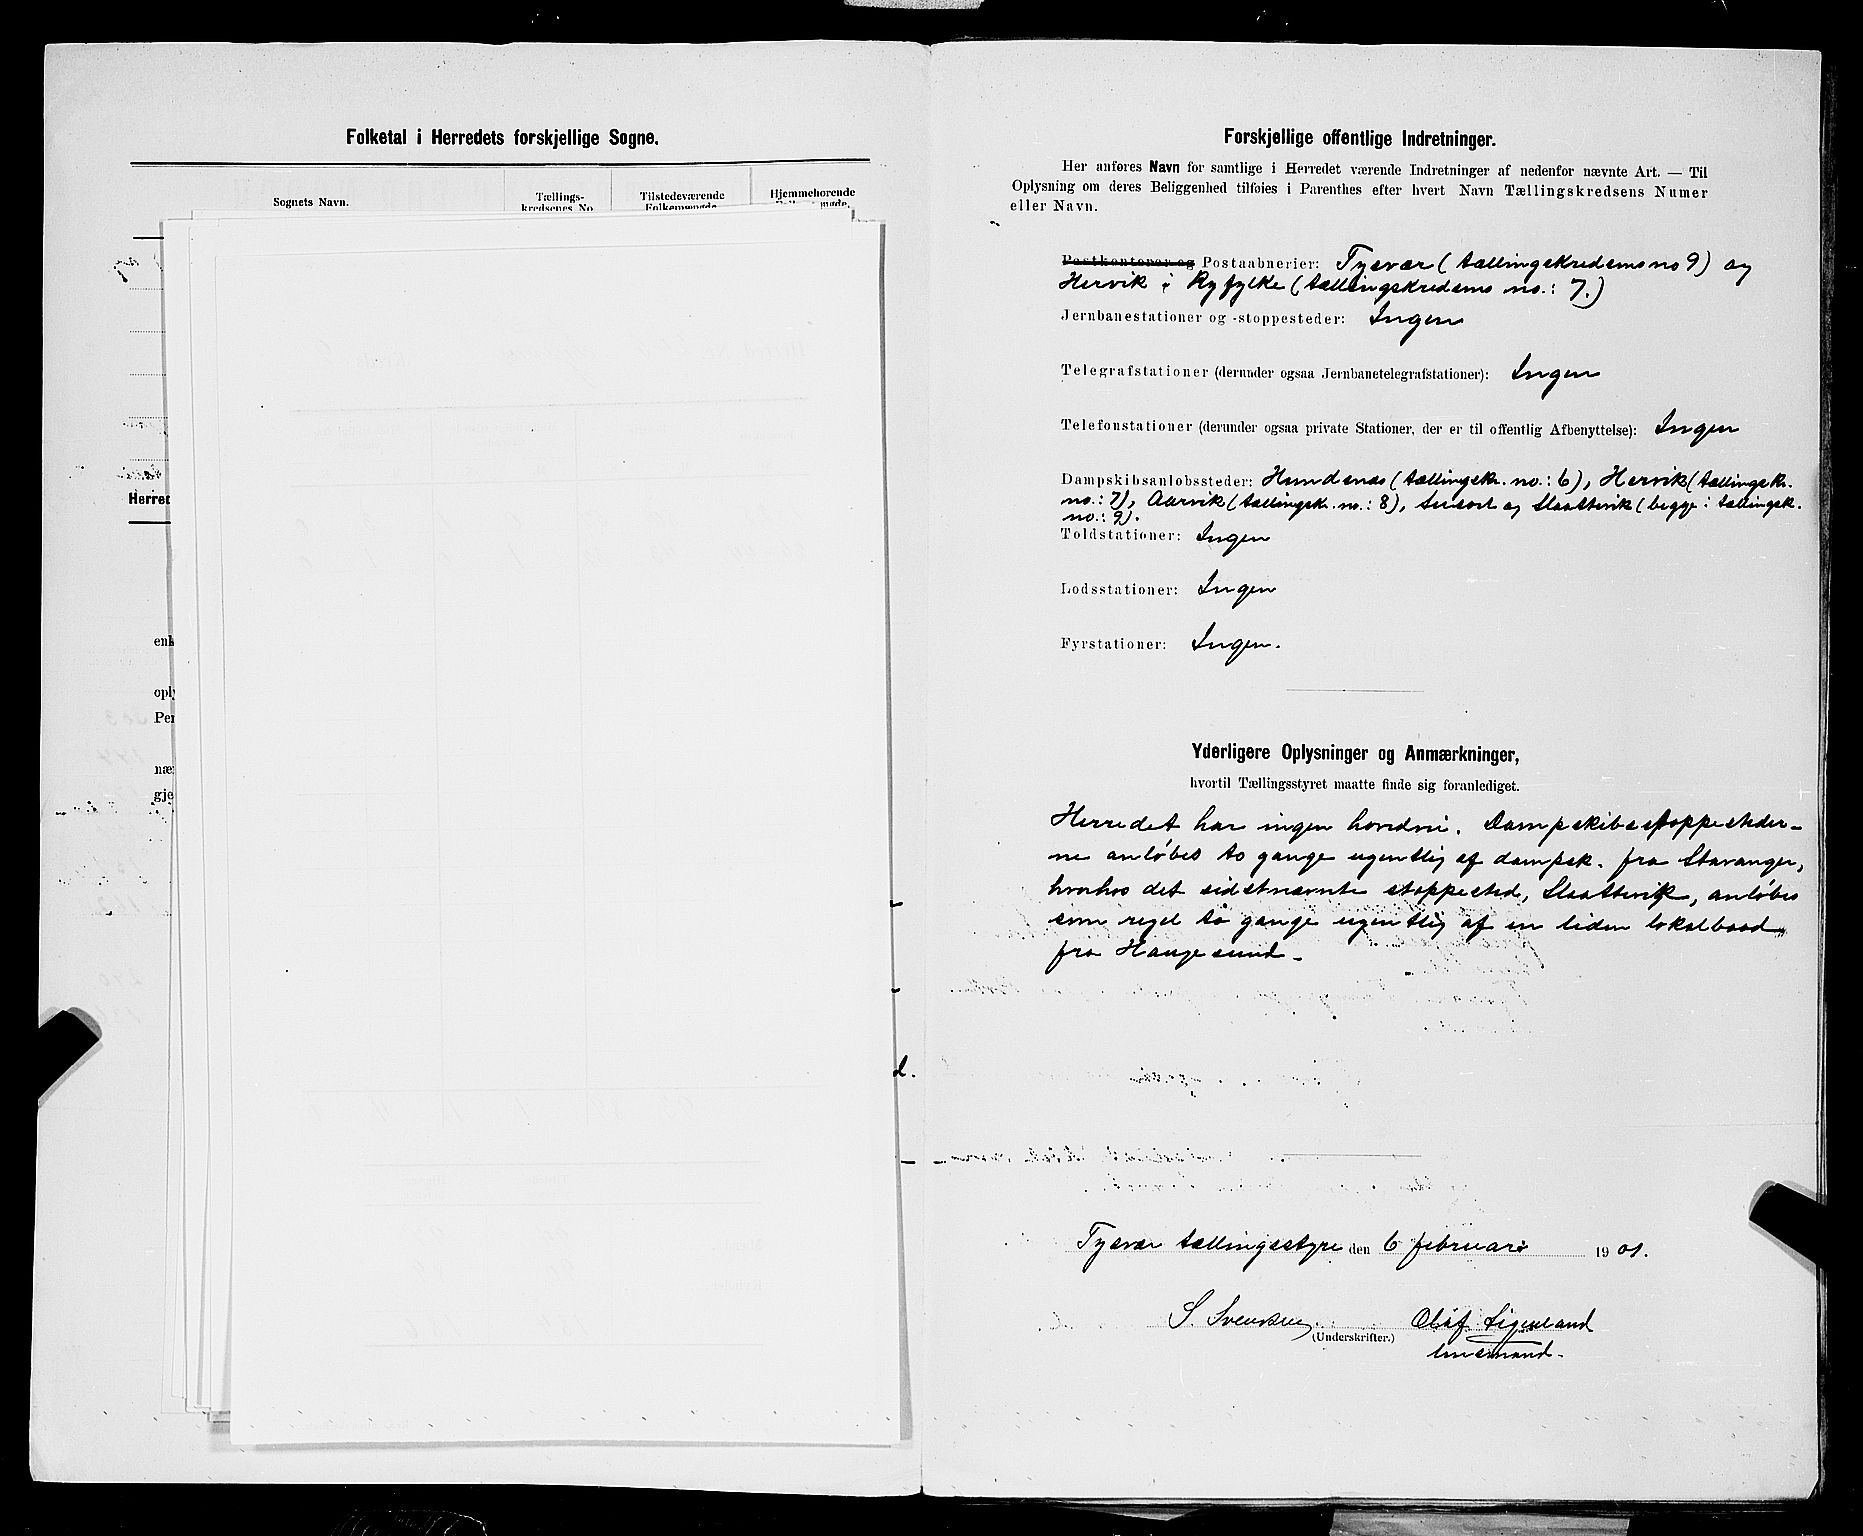 Folketal i Herredets forskjellige Sogne.
Sognets Navn.
Tællings-
kredsenes No
Tilstedeværende
Folkemængde
Hjemmehørende
Herred
enk
oply
Per
nær
gje
Forskjellige offentlige Indretninger.
Her anføres Navn for samtlige i Herredet værende Indretninger af nedenfor nævnte Art. — Til
Oplysning om deres Beliggenhed tilføies i Parenthes efter hvert Navn Tællingskredsens Numer
eller Navn.
Postkontorer og Postaabnerier: Tysvær (tællingskredsens no 9) og
Hervik i Ryfylke (tællingskredsens no.: 7.)
Jernbanestationer og -stoppesteder: Ingen
Telegrafstationer (derunder ogsaa Jernbanetelegrafstationer): Ingen
Telefonstationer (derunder ogsaa private Stationer, der er til offentlig Afbenyttelse): Ingen
Dampskibsanløbssteder: Hundsnes (tællingskr. no.: 6), Hervik (tællingskr.
no.: 7), Aarvik (tællingskr. no.: 8), og Slaattevik (begge i tællingsk.
no.: 9).
Toldstationer: Ingen
Lodsstationer: Ingen
Fyrstationer: Ingen.
Yderligere Oplysninger og Anmærkninger,
hvortil Tællingsstyret maatte finde sig foranlediget.
Herredet har ingen hovedvei. Dampskibsstoppesteder-
ne anløbes to gange ugentlig af dampsk. fra Stavanger,
hvorhos det sidstnævnte stoppested, Slaattevik, anløbes
som regel to gange ugentlig af en liden lokalbaad
fra Haugesund.
Tysvær tællingsstyre den 6 februar 1901.
S. Svendsen
Olaf
(Underskrifter.)
lensmand.